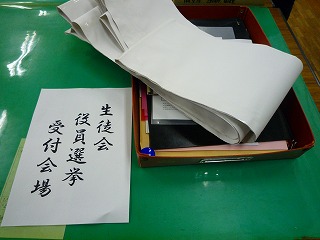 生徒会
役員選挙
受付会場